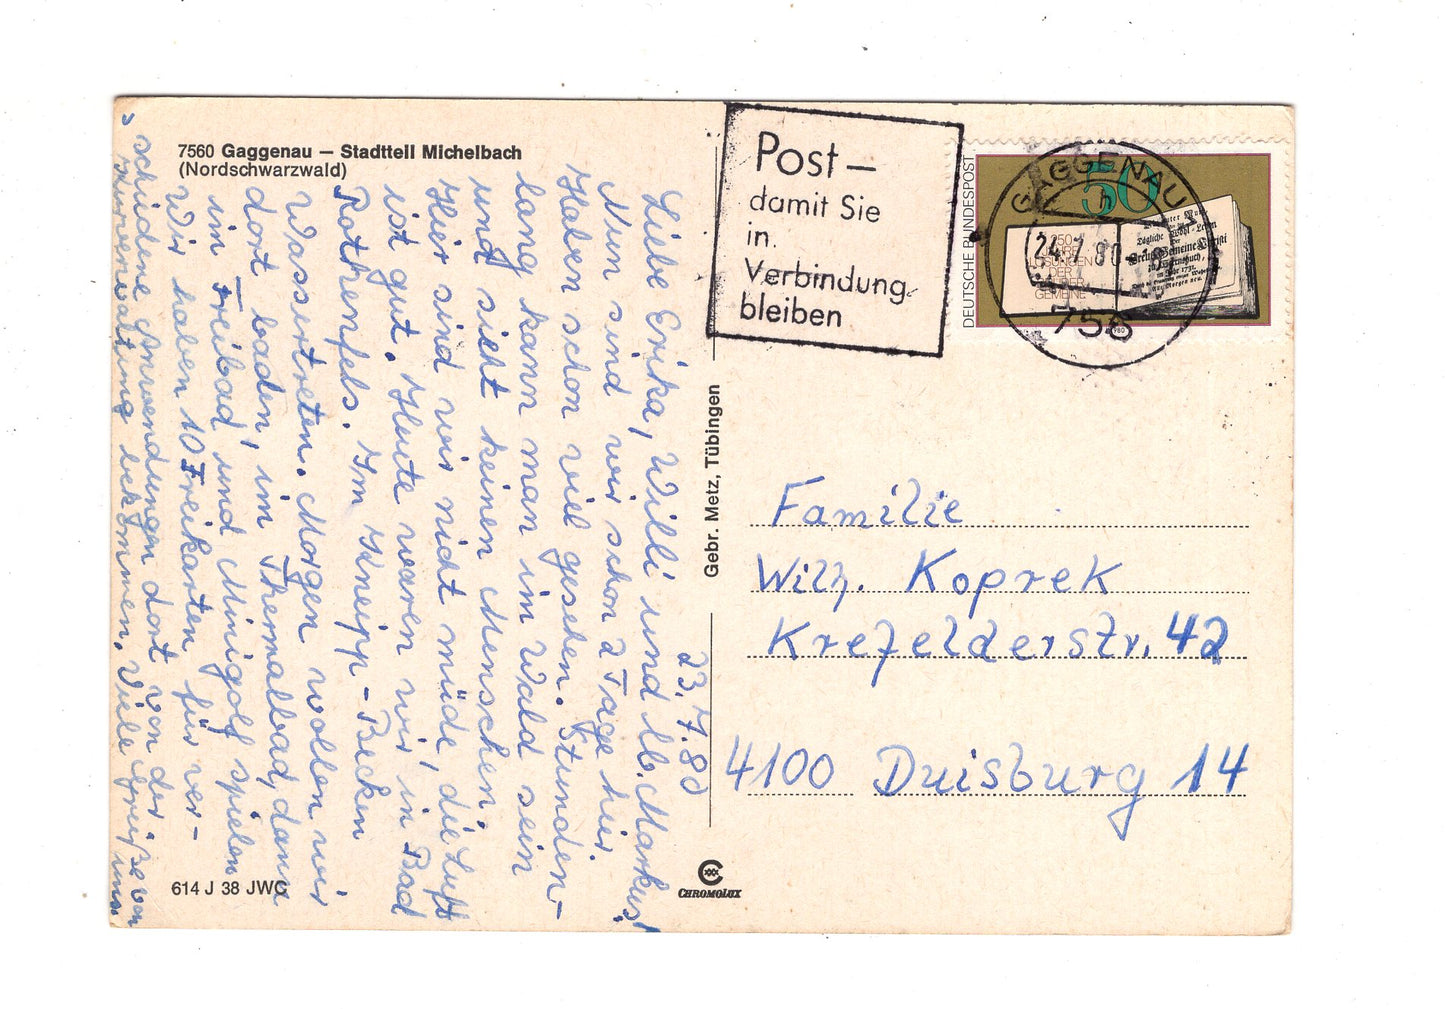 7560 Gaggenau – Stadtteil Michelbach
(Nordschwarzwald)
23.7.80
Liebe Erika, Willi und lb. Markus!
Nun sind wir schon 2 Tage hier
Haben schon viel gesehen. Stunden-
lang kann man im Wald sein
und sieht keinen Menschen.
Hier sind wir nicht müde, die Luft
ist gut. Heute waren wir in Bad
Rothenfels. Im Kneipp-Becken
Wassertreten. Morgen wollen wir
dort baden, im Thermalbad, dann
im Freibad und Minigolf spielen
Wir haben 10 Freikarten für ver-
schiedene Anwendungen dort von der
Kurverwaltung bekommen. Viele Grüße von
uns
614 J 38 JWC
Gebr. Metz, Tübingen
CHROMOLUX
Post –
damit Sie
in
Verbindung
bleiben
DEUTSCHE BUNDESPOST
50
250
JAHRE
LOSUNGEN
DER
BRÜDER
GEMEINE
Tägliche Wohl-Leben
Der
Creutz Gemeine Christi
im Jahr 1731
1980
GAGGENAU 1
24.7.80
756
Familie
Wilh. Koprek
Krefelderstr. 42
4100 Duisburg 14